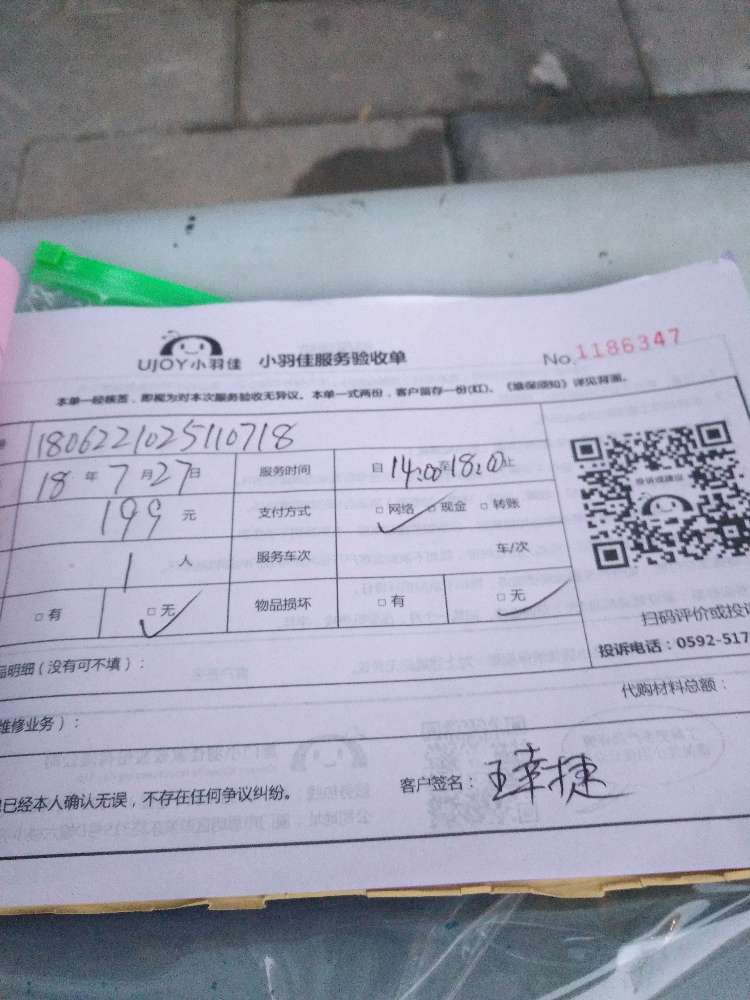 UJOY小羽佳 小羽佳服务验收单 No.1186347
本单一经核签，即视为对本次服务验收无异议。本单一式两份，客户留存一份(红)。《维保须知》详见背面。
单 1806221025110718
18 年 7 月 27 日 服务时间 自 14:00 至 18:00 止
199 元 支付方式 □ 网络 □ 现金 □ 转账
投诉或建议
1 人 服务车次 车/次
□ 有 □ 无 物品损坏 □ 有 □ 无
扫码评价或投诉
品明细（没有可不填）： 投诉电话：0592-517
代购材料总额：
维修业务）：
已经本人确认无误，不存在任何争议纠纷。 客户签名：